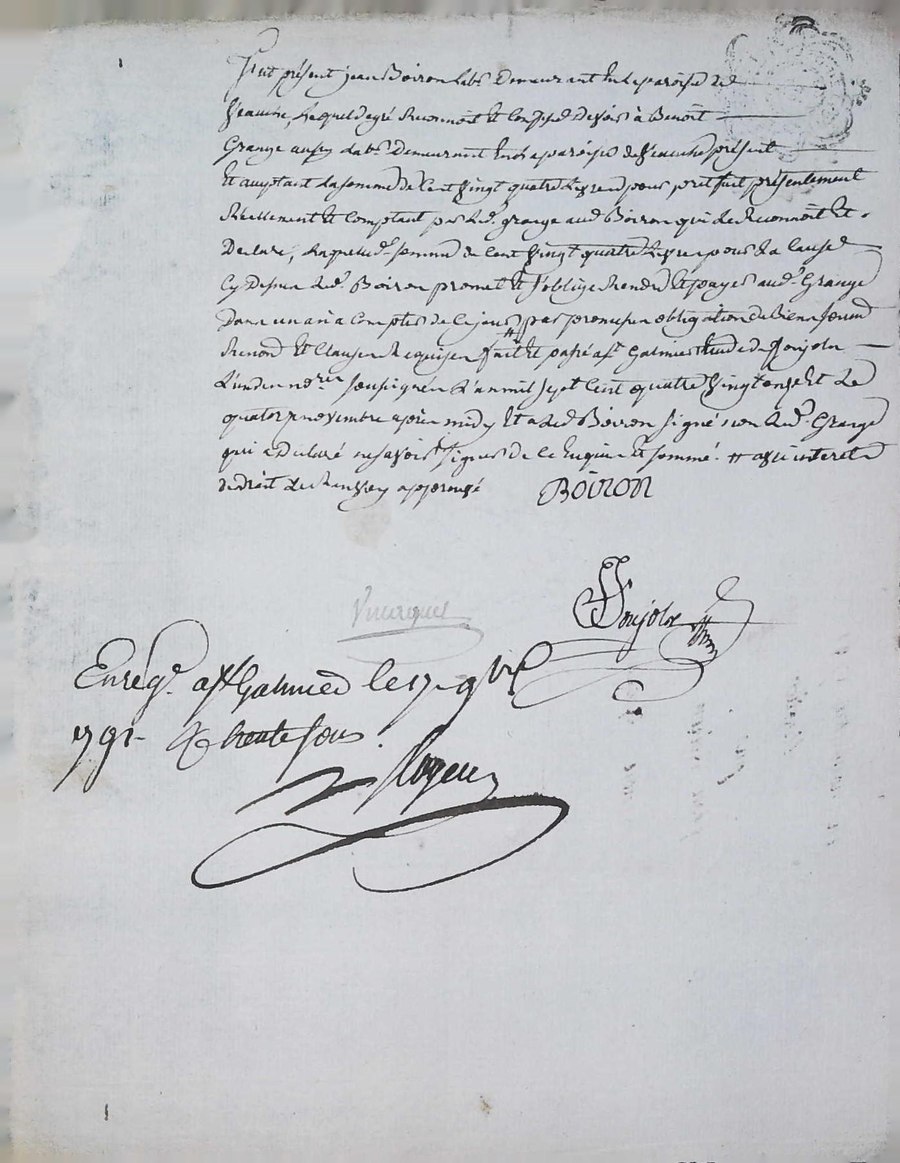 Fut présent jean Boiron lab.r Demeurant en la paroisse de
Veauche, Lequel de gré Reconnoit et Confesse devoir à Benoit
Grange aussy Lab.r Demeurant en la paroisse de Veauche présent
Et acceptant La somme de Cent vingt quatre Livres pour pret fait présentement
Réellement et Comptant par Led. grange aud. Boiron qui Le Reconnoit et
Declare, Laquelle d. somme de Cent vingt quatre Livres pour La Cause
Cy Dessus Led. Boiron promet et s'oblige Rendre et payer aud. Grange
Dans un an a Compter de Ce jour # par promesses obligation de Biens soum
Renonc et Clauses Requises fait et passé a S.t Galmier Etude de Ponjolx
L'un des no.res soussignés L'an mil sept Cent quatre vingt onze et Le
quatorze novembre après midy et a Led. Boiron signé non Led. Grange
qui a declaré ne savoir signer de Ce Enquis et sommé. # avec interets
de droit Le Renvoy approuvé BOIRON
Enreg.é a S.t Galmier le 17 9bre
1791 R trente sous.